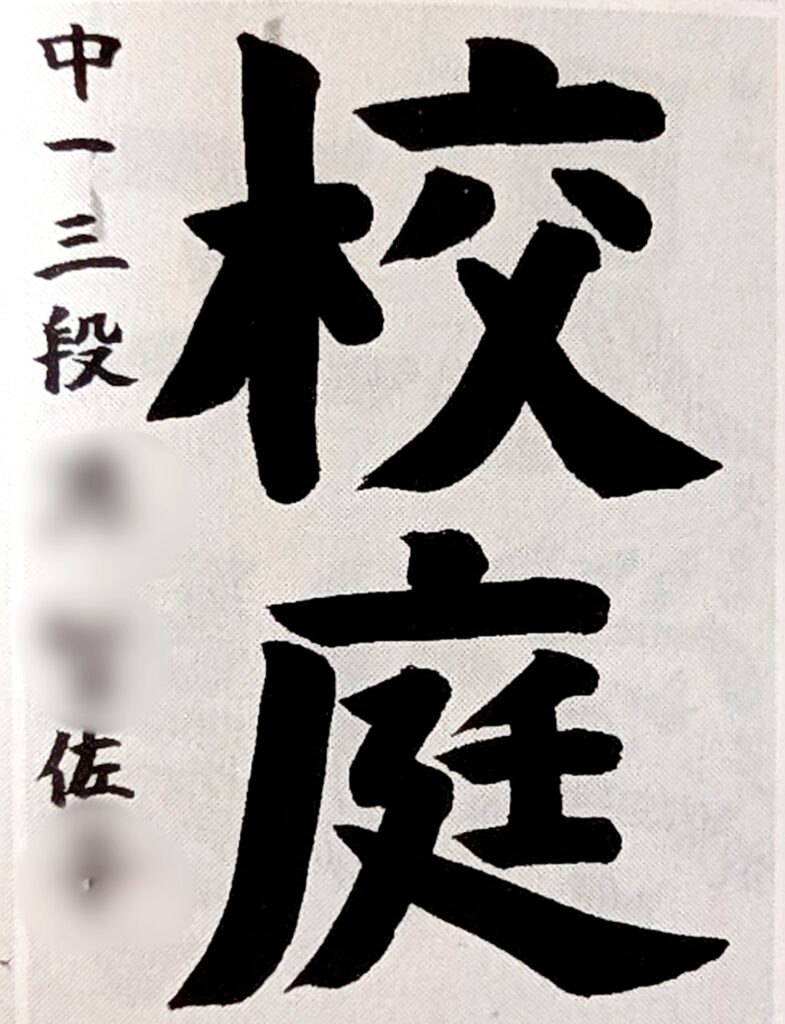 校庭
中一三段 佐